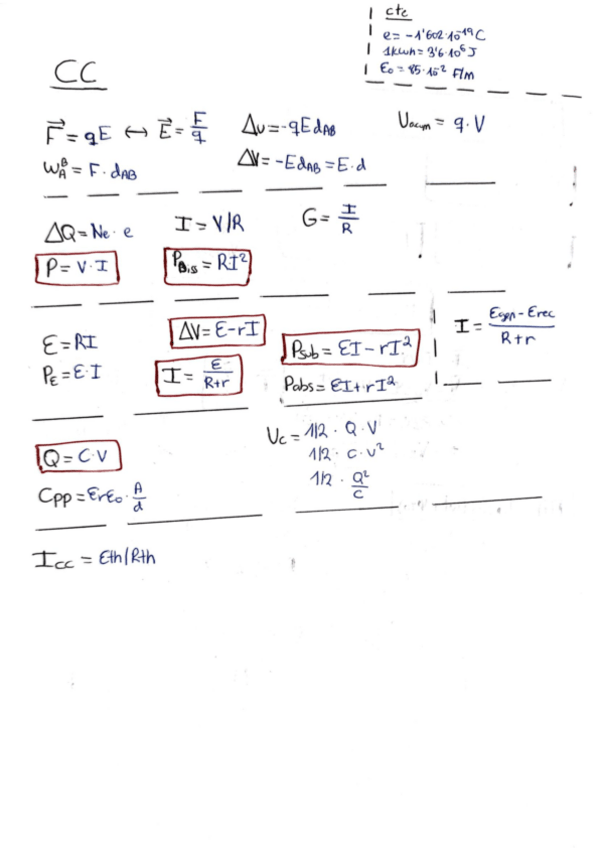 ctc
e = -1'602·10⁻¹⁹ C
1kwh = 3'6·10⁶ J
ε₀ = 85·10⁻² F/m
CC
F⃗ = qE ↔ E⃗ = F/q
Δu = -qEd_AB
U_acum = q·V
W_A^B = F·d_AB
ΔV = -Ed_AB = E·d
ΔQ = Ne·e
I = V/R
G = I/R
P = V·I
P_Dis = RI²
ε = RI
ΔV = ε-rI
P_sub = εI - rI²
I = (ε_gen - ε_rec)/(R+r)
P_ε = ε·I
I = ε/(R+r)
P_abs = εI + rI²
Q = C·V
U_c = 1/2 · Q·V
1/2 · c·v²
1/2 · Q²/c
C_pp = εrε₀ · A/d
I_cc = εth/Rth